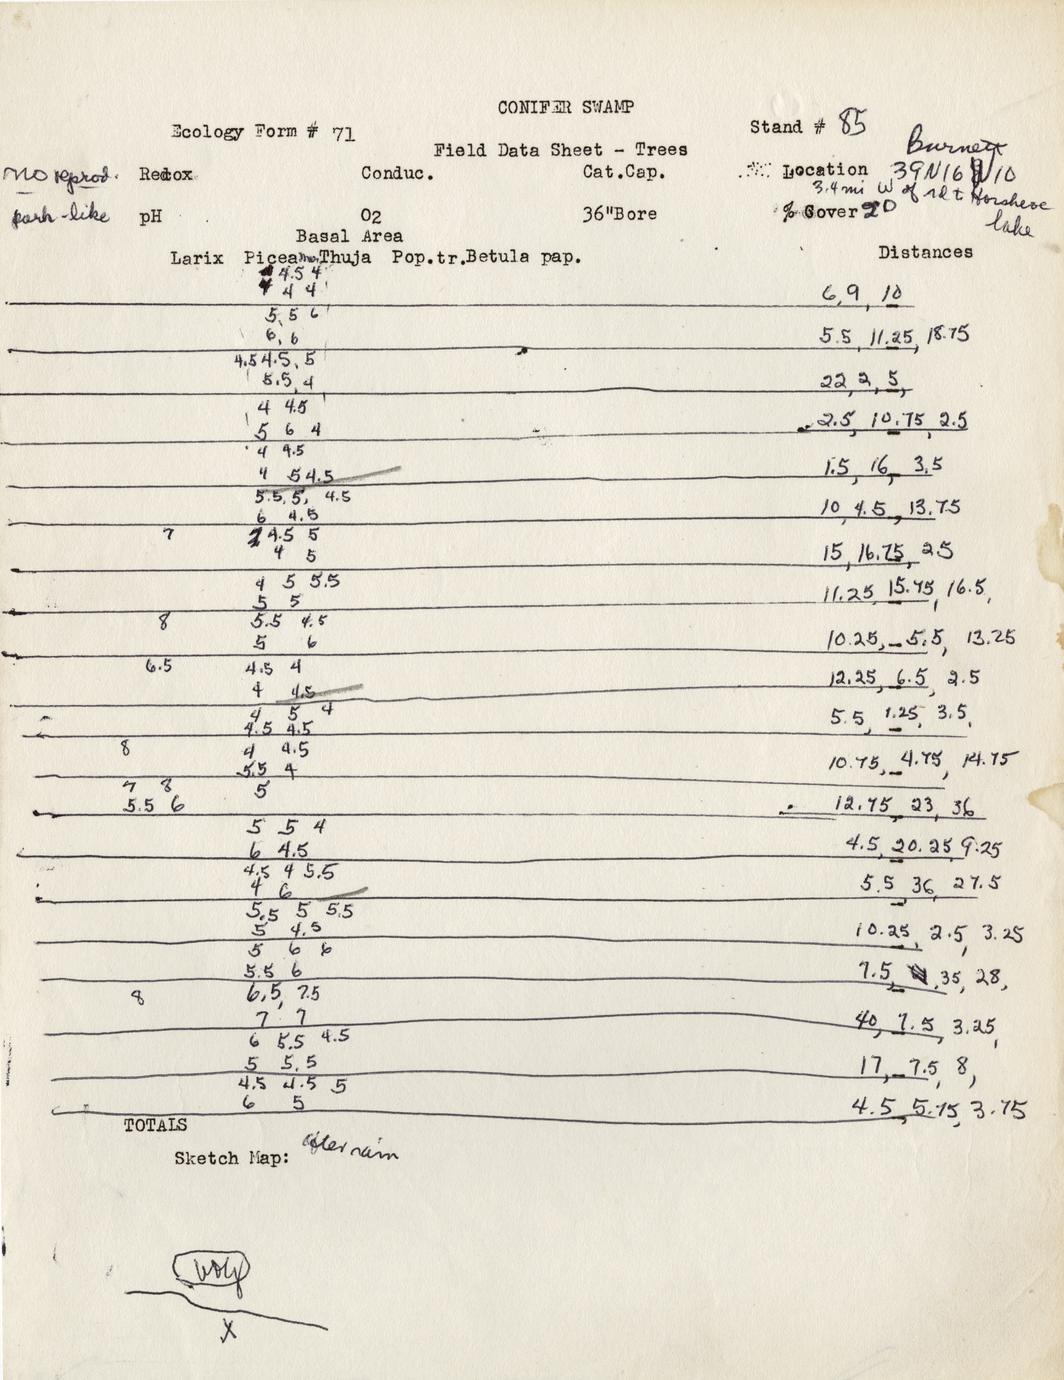 CONIFER SWAMP
Ecology Form # 71 Stand # 85
Field Data Sheet - Trees Burnett
no reprod. Redox Conduc. Cat.Cap. Location 39N16W10
3.4 mi W of rd t Horshoe lake
park-like pH O2 36"Bore % Cover 20
Basal Area
Larix Picea mar. Thuja Pop.tr.Betula pap. Distances
4.5 4
4 4 4 6, 9, 10
5, 5 6
6, 6 5.5, 11.25, 18.75
4.5 4.5, 5
5.5, 4 22, 2, 5,
4 4.5
5 6 4 2.5, 10.75, 2.5
4 4.5
4 5 4.5 1.5, 16, 3.5
5.5, 5, 4.5
6 4.5 10, 4.5, 13.75
7 4.5 5
4 5 15, 16.75, 2.5
4 5 5.5
5 5 11.25, 15.75, 16.5,
8 5.5 4.5
5 6 10.25, 5.5, 13.25
6.5 4.5 4
4 4.5 12.25, 6.5, 2.5
4 5 4
4.5 4.5 5.5, 1.25, 3.5,
8 4 4.5
5.5 4 10.75, 4.75, 14.75
7 8 5
5.5 6 12.75, 23, 36
5 5 4
6 4.5 4.5, 20.25, 9.25
4.5 4 5.5
4 6 5.5, 36, 27.5
5.5 5 5.5
5 4.5 10.25, 2.5, 3.25
5 6 6
5.5 6 7.5, 35, 28,
8 6.5, 7.5
7 7 40, 7.5, 3.25,
6 5.5 4.5
5 5.5 17, 7.5, 8,
4.5 4.5 5
6 5 4.5, 5.75, 3.75
TOTALS
Sketch Map: after rain
X